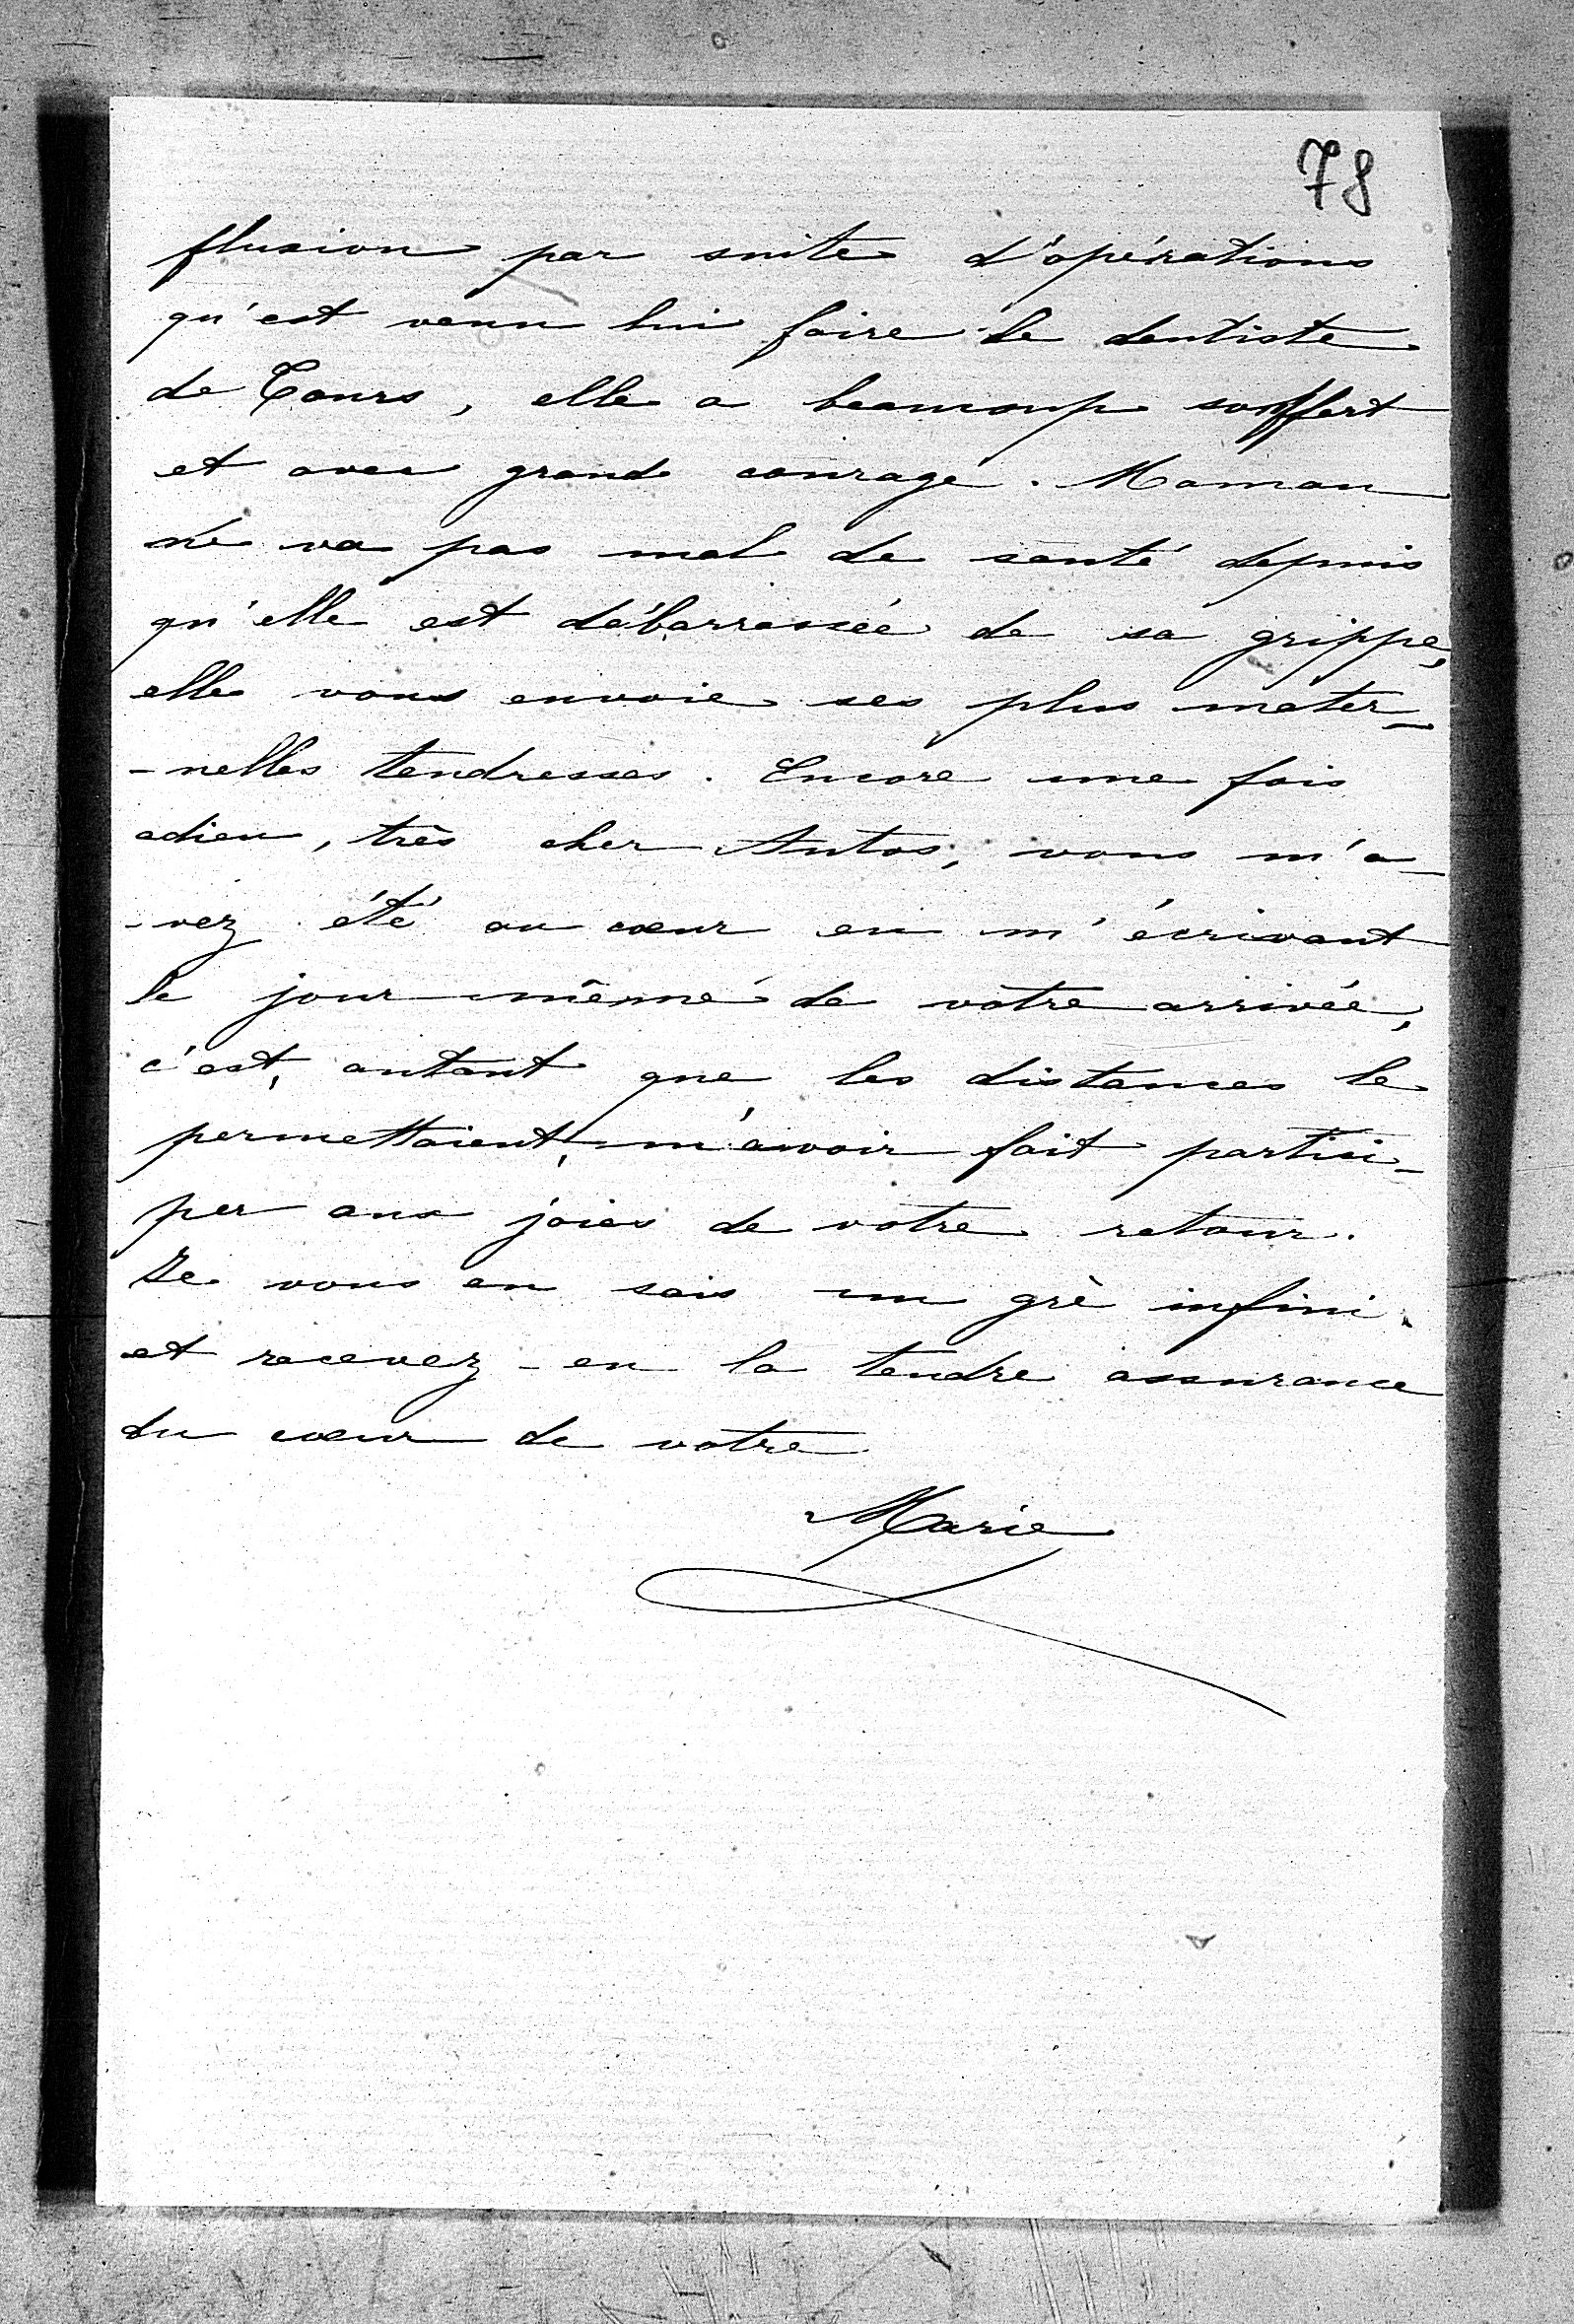 78
fluxion par suite d'opérations
qu'est venu lui faire le dentiste
de Tours, elle a beaucoup souffert
et avec grand courage. Maman
ne va pas mal de santé depuis
qu'elle est débarrassée de sa grippe,
elle vous envoie ses plus mater-
-nelles tendresses. Encore une fois
adieu, très cher Antos, vous m'a-
-vez été au cœur en m'écrivant
le jour même de votre arrivée,
c'est, autant que les distances le
permettaient, m'avoir fait partici-
per aux joies de votre retour.
Je vous en sais un gré infini
et recevez-en la tendre assurance
du cœur de votre
Marie